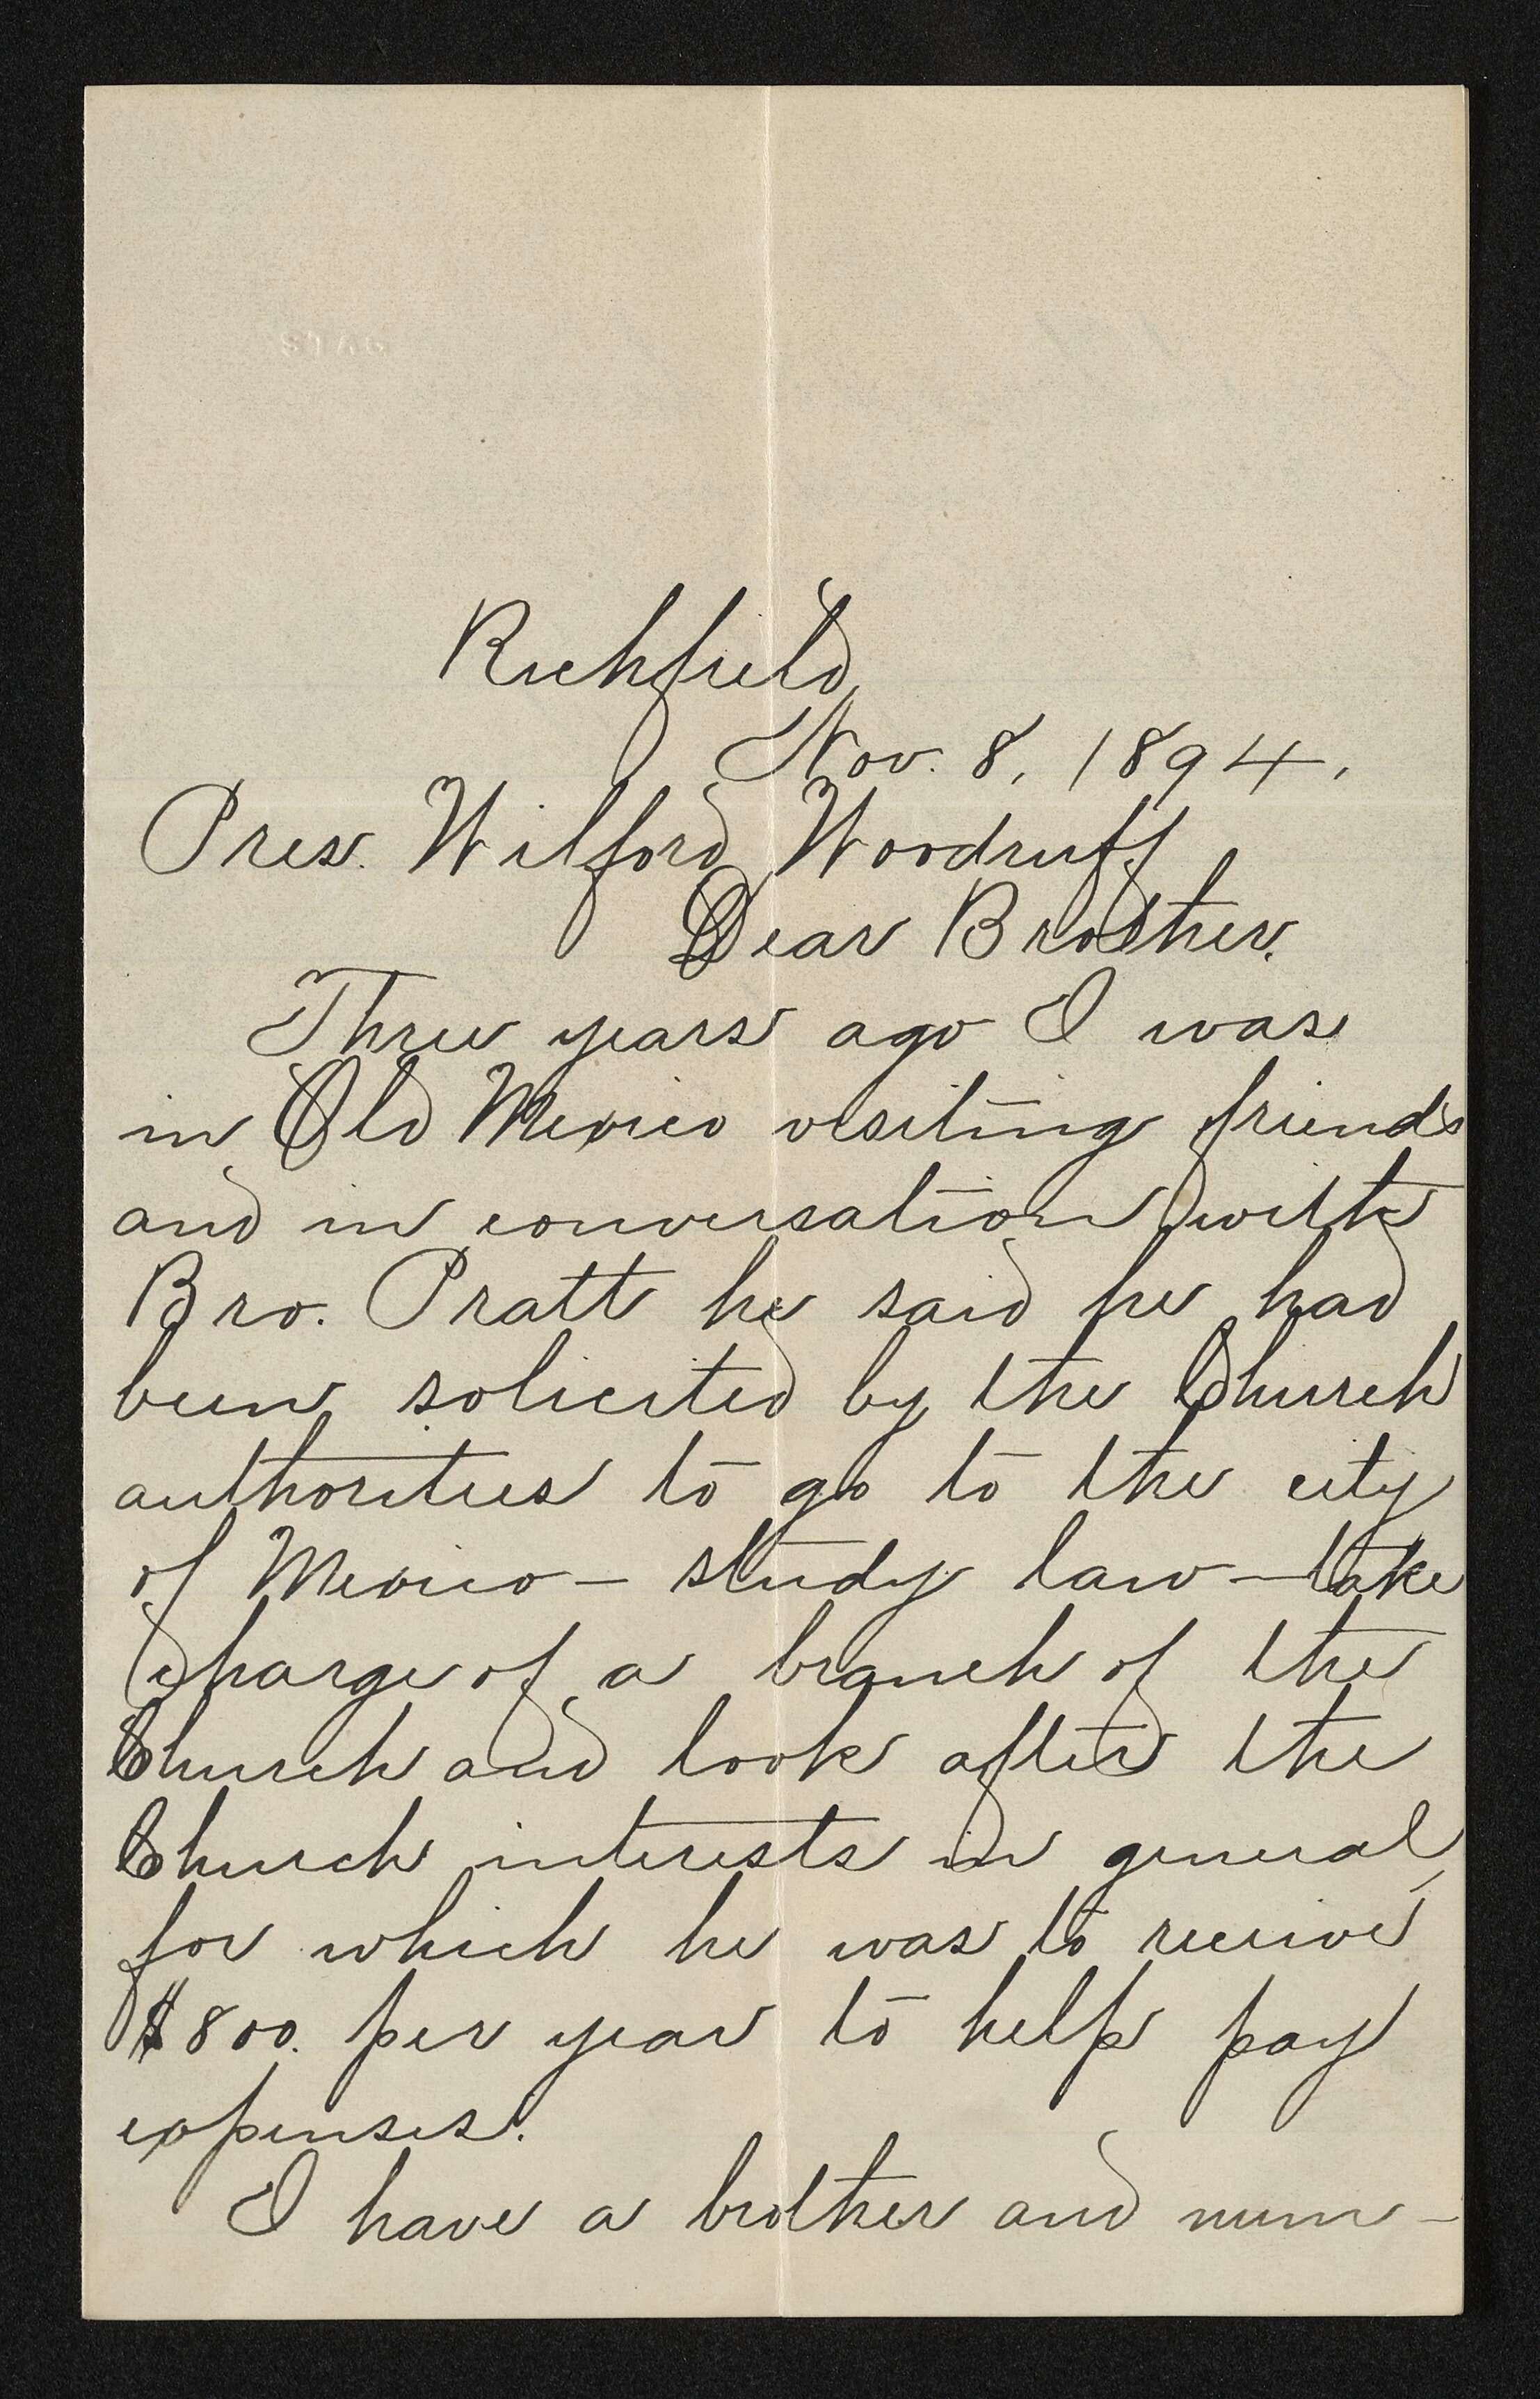 Richfield,
Nov. 8, 1894,
Pres. Wilford Woodruff,
Dear Brother.
Three years ago I was
in Old Mexico visiting friends
and in conversation with
Bro. Pratt he said he had
been solicited by the Church
authorities to go to the city
of Mexico – study law – take
charge of a branch of the
Church and look after the
Church interests in general,
for which he was to receive
$800. per year to help pay
expenses.
I have a brother and num-